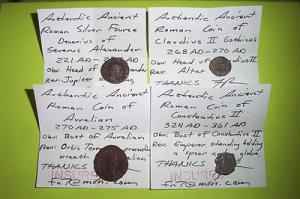 Authentic Ancient
Roman Silver Fource
Denarius of
Severus Alexander
221 AD
Obv: Head of
Rev: Jupiter
Authentic Ancient
Roman Coin of
Claudius II Gothicus
268 AD - 270 AD
Obv: Head of Claudius II
Rev: Altar
THANKS
Authentic Ancient
Roman Coin of
Aurelian
270 AD - 275 AD
Obv: Bust of Aurelian
Rev: Orbis Terr
wreath
THANKS
INSURED
Authentic Ancient
Roman Coin of
Constantius II
324 AD - 361 AD
Obv: Bust of Constantius II
Rev: Emperor standing holding
a spear and globe.
THANKS
INSURED